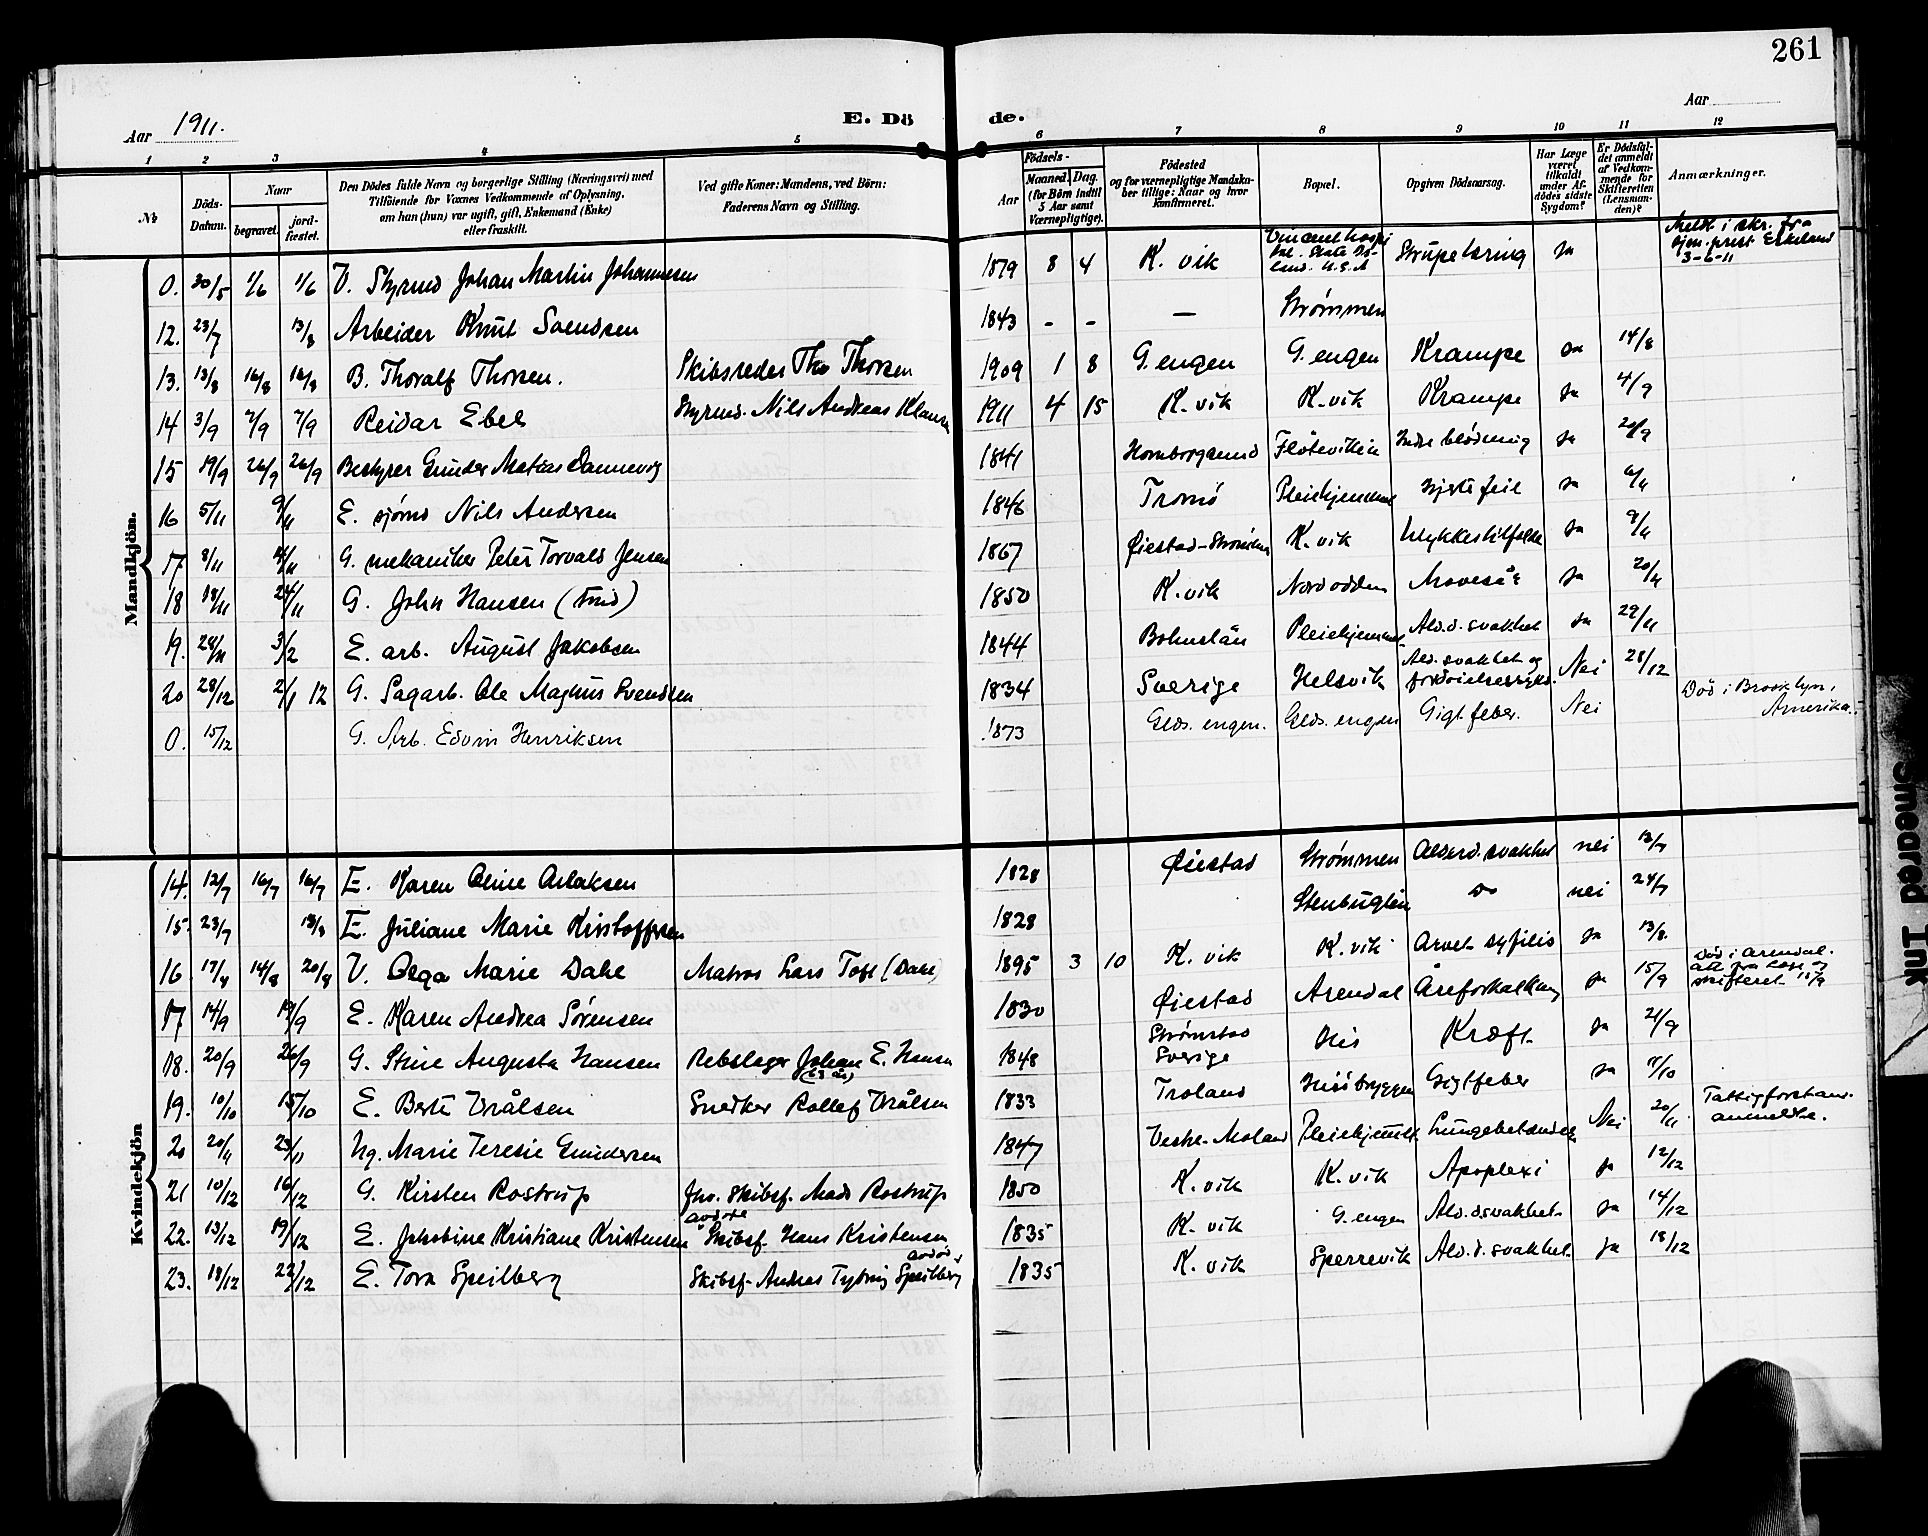 261
Aar 1911.
E. Dö de.
Aar
1 2 3 4 5 6 7 8 9 10 11 12
№
Döds-Datum.
Naar
begravet.
jord-fæstet.
Den Dödes fulde Navn og borgerlige Stilling (Næringsvei) med Tilföiende for Voxnes Vedkommende af Oplysning, om han (hun) var ugift, gift, Enkemand (Enke) eller fraskilt.
Ved gifte Koner: Mandens, ved Börn: Faderens Navn og Stilling.
Födsels-
Aar
Maaned. Dag.
(for Börn indtil 5 Aar samt Værnepligtige).
Födested og for værnepligtige Mandskaber tillige: Naar og hvor konfirmeret.
Bopæl.
Opgiven Dödsaarsag.
Har Læge været tilkaldt under Afdödes sidste Sygdom?
Er Dödsfaldet anmeldt af Vedkommende for Skifteretten (Lensmanden)?
Anmærkninger.
Mandkjön.
0. 30/5 1/6 1/6 U. Styrmd Johan Martin Johannesen 1879 8 4 K. vik U.S.A Strupetæring ja 3-6-11
12. 23/7 13/8 Arbeider Knut Svendsen 1843 - - — Strømmen
13. 13/8 16/8 16/8 B. Thoralf Thorsen. Skibsreder Tho Thorsen 1909 1 8 G. engen G. engen Krampe ja 14/8
14 3/9 7/9 7/9 Reidar Ebel Styrmd. Nils Andreas Klausen 1911 4 15 K. vik K. vik Krampe ja 4/9
15 19/9 26/9 26/9 Bestyrer Gunder Matias Dannevig 1841 Homborgsund Fløtevikin Indre blødning ja 20/9
16 5/11 9/11 E. sjømd Nils Andersen 1846 Tromø Pleiehjemmet Hjertefeil ja 6/11
17 8/11 14/11 G. mekaniker Peter Torvald Jensen 1867 Øiestad-Strømmen K. vik Ulykkestilfælde ja 9/11
18 18/11 24/11 G. John Hansen 1850 K. vik Nordodden Mavesår ja 20/11
19. 28/11 3/12 E. arb. August Jakobsen 1844 Bohuslän Pleiehjemmet Ald.d. svakhet ja 29/11
20 28/12 2/1 12 G. Sagarb. Ole Magnus Svendsen 1834 Sverige Helsvik Ald. svakhet og Nei 28/12
0. 15/12 G. Arb. Edvin Henriksen 1873 Glds. engen. Glds. engen Gigtfeber. Nei Död i Brooklyn, Amerika.
Kvindekjön
14. 12/7 16/7 16/7 E. Karen Oline Aslaksen 1828 Øiestad Strømmen Alderd. svakhet nei 13/7
15. 23/7 13/8 E. Juliane Marie Kristoffersen 1828 Stenbuglen do nei 24/7
16. 17/8 14/8 20/8 U. Olga Marie Dahl Matros Lars Toft (Dahl) 1895 3 10 K. vik K. vik Arvet syfilis ja 13/8.
17 14/9 19/9 E. Karen Andrea Sørensen 1830 Øiestad Arendal Åreforkalkning ja 15/9 Död i Arendal. att. fra læge og skifteret 15/9
18. 20/9 26/9 G. Stine Augusta Hansen Rebslager Johan E. Hansen 1848 Strømstad Sverige His Kræft. ja 21/9
19. 10/10 15/10 E. Berte Vrålsen Snedker Rollef Vrålsen 1833 Troland Hisöbryggen Gigtfeber ja 11/10
20 20/11 23/11 Ug. Marie Teresie Gundersen 1847 Vestre-Moland Pleiehjemmet Lungebetændelse Nei 20/11. Fattigforstand. anmeldte.
21 10/12 16/12 G. Kirsten Rostrup fhv. Skibsf. Mads Rostrup 1850 K. vik K. vik Apoplexi ja 12/12
22. 13/12 19/12 E. Jakobine Kristiane Kristensen avdøde Skibsf. Hans Kristensen 1835 K. vik G. engen Ald.dsvakhet. ja 14/12
23. 18/12 22/12 E. Tora Speilberg Skibsf. Andreas Tybring Speilberg 1835 K. vik Sperrevik Ald.d. svakhet. ja 18/12
Smeared Ink